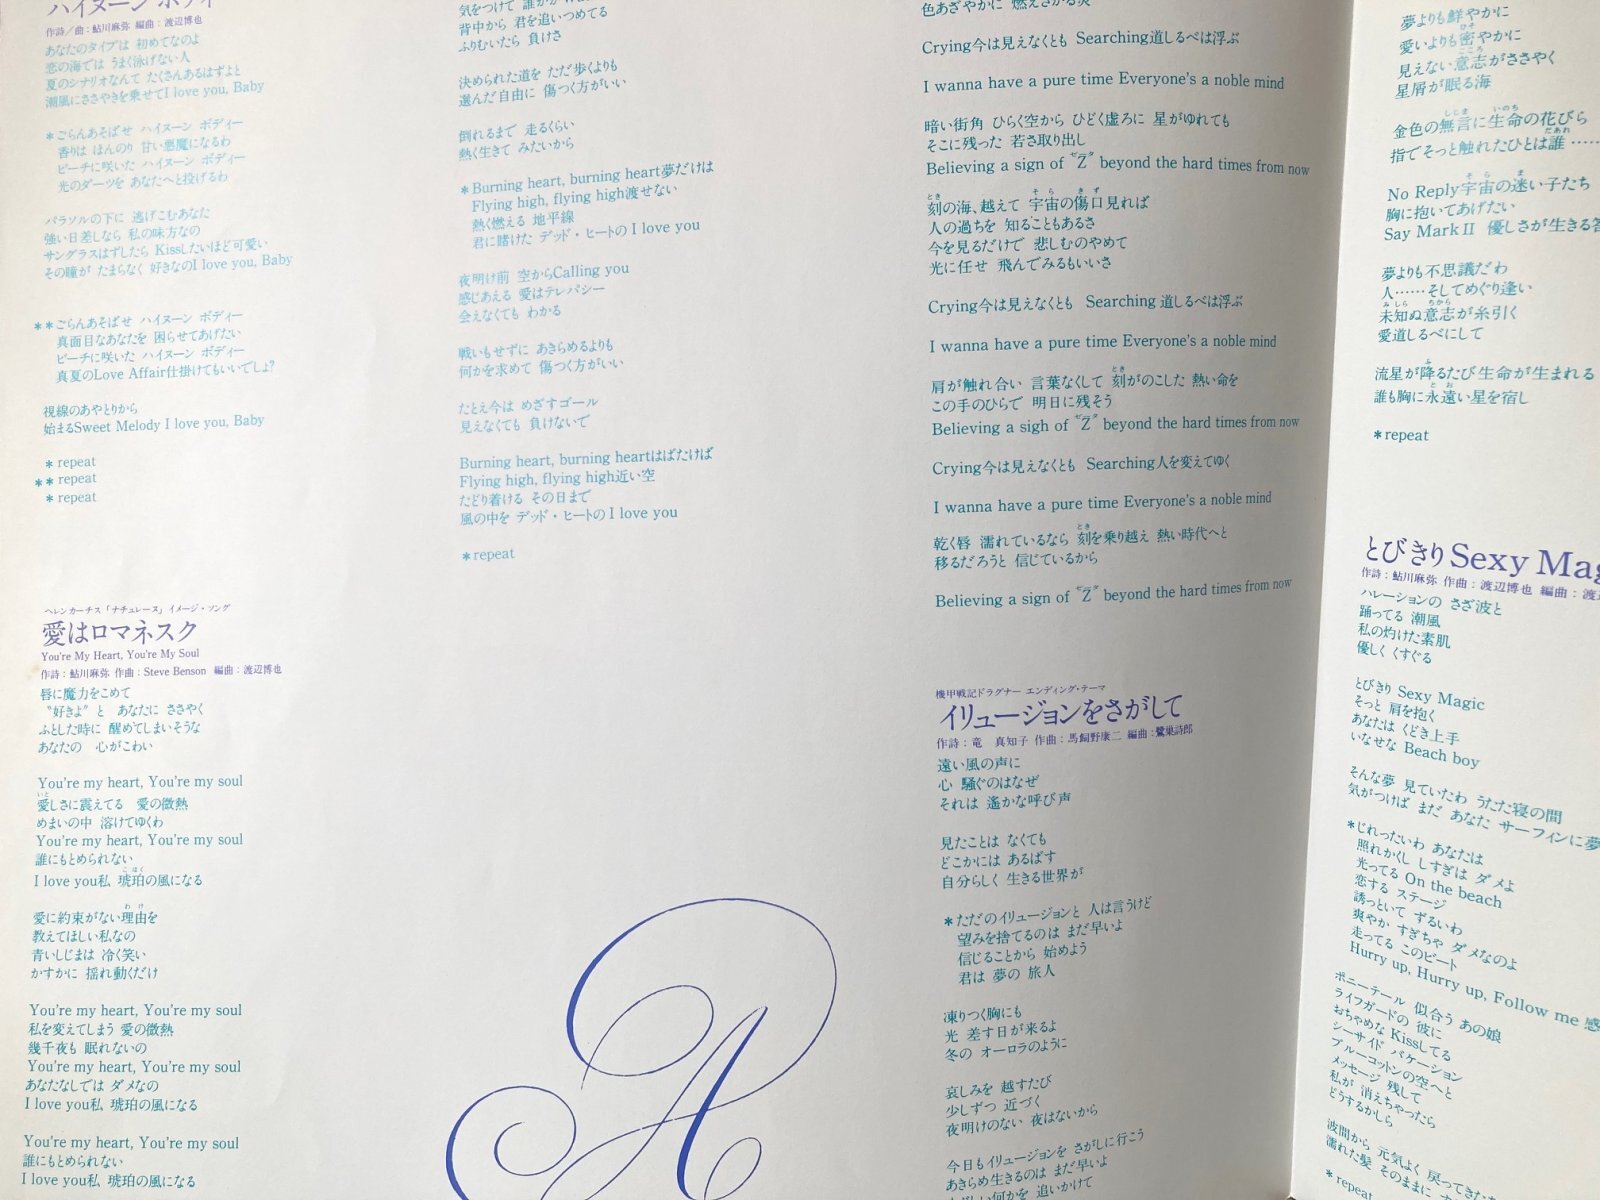 ハイヌーン ボディ
作詩／曲：鮎川麻弥 編曲：渡辺博也
あなたのタイプは 初めてなのよ
恋の海では うまく泳げない人
夏のシナリオなんて たくさんあるはずよと
潮風にささやきを乗せてI love you, Baby
＊ごらんあそばせ ハイヌーン ボディー
香りは ほんのり 甘い悪魔になるわ
ビーチに咲いた ハイヌーン ボディー
光のダーツを あなたへと投げるわ
パラソルの下に 逃げこむあなた
強い日差しなら 私の味方なの
サングラスはずしたら Kissしたいほど可愛い
その瞳が たまらなく 好きなのI love you, Baby
＊＊ごらんあそばせ ハイヌーン ボディー
真面目なあなたを 困らせてあげたい
ビーチに咲いた ハイヌーン ボディー
真夏のLove Affair仕掛けてもいいでしょ?
視線のあやとりから
始まるSweet Melody I love you, Baby
＊repeat
＊＊repeat
＊repeat
ヘレンカーチス「ナチュレーヌ」イメージ・ソング
愛はロマネスク
You're My Heart, You're My Soul
作詩：鮎川麻弥 作曲：Steve Benson 編曲：渡辺博也
唇に魔力をこめて
〝好きよ〟と あなたに ささやく
ふとした時に 醒めてしまいそうな
あなたの 心がこわい
You're my heart, You're my soul
愛しさに震えてる 愛の微熱
めまいの中 溶けてゆくわ
You're my heart, You're my soul
誰にもとめられない
I love you私 琥珀の風になる
愛に約束がない理由を
教えてほしい私なの
青いしじまは 冷く笑い
かすかに 揺れ動くだけ
You're my heart, You're my soul
私を変えてしまう 愛の微熱
幾千夜も 眠れないの
You're my heart, You're my soul
あなたなしでは ダメなの
I love you私 琥珀の風になる
You're my heart, You're my soul
誰にもとめられない
I love you私 琥珀の風になる
背中から 君を追いつめてる
ふりむいたら 負けさ
決められた道を ただ歩くよりも
選んだ自由に 傷つく方がいい
倒れるまで 走るくらい
熱く生きて みたいから
＊Burning heart, burning heart夢だけは
Flying high, flying high渡せない
熱く燃える 地平線
君に賭けた デッド・ヒートの I love you
夜明け前 空からCalling you
感じあえる 愛はテレパシー
会えなくても わかる
戦いもせずに あきらめるよりも
何かを求めて 傷つく方がいい
たとえ今は めざすゴール
見えなくても 負けないで
Burning heart, burning heartはばたけば
Flying high, flying high近い空
たどり着ける その日まで
風の中を デッド・ヒートの I love you
＊repeat
A
色あざやかに 燃えさかる炎
Crying今は見えなくとも Searching道しるべは浮ぶ
I wanna have a pure time Everyone's a noble mind
暗い街角 ひらく空から ひどく虚ろに 星がゆれても
そこに残った 若さ取り出し
Believing a sign of 〝Z〟 beyond the hard times from now
刻の海、越えて 宇宙の傷口見れば
人の過ちを 知ることもあるさ
今を見るだけで 悲しむのやめて
光に任せ 飛んでみるもいいさ
Crying今は見えなくとも Searching 道しるべは浮ぶ
I wanna have a pure time Everyone's a noble mind
肩が触れ合い 言葉なくして 刻がのこした 熱い命を
この手のひらで 明日に残そう
Believing a sigh of 〝Z〟 beyond the hard times from now
Crying今は見えなくとも Searching人を変えてゆく
I wanna have a pure time Everyone's a noble mind
乾く唇 濡れているなら 刻を乗り越え 熱い時代へと
移るだろうと 信じているから
Believing a sign of 〝Z〟 beyond the hard times from now
機甲戦記ドラグナー エンディング・テーマ
イリュージョンをさがして
作詩：竜 真知子 作曲：馬飼野康二 編曲：鷺巣詩郎
遠い風の声に
心 騒ぐのはなぜ
それは 遙かな呼び声
見たことは なくても
どこかには あるばず
自分らしく 生きる世界が
＊ただのイリュージョンと 人は言うけど
望みを捨てるのは まだ早いよ
信じることから 始めよう
君は 夢の 旅人
凍りつく胸にも
光 差す日が来るよ
冬の オーロラのように
哀しみを 越すたび
少しずつ 近づく
夜明けのない 夜はないから
今日もイリュージョンを さがしに行こう
あきらめ生きるのは まだ早いよ
夢よりも鮮やかに
愛いよりも密やかに
見えない意志がささやく
星屑が眠る海
金色の無言に生命の花びら
指でそっと触れたひとは誰……
No Reply宇宙の迷い子たち
胸に抱いてあげたい
Say MarkⅡ 優しさが生きる答
夢よりも不思議だわ
人……そしてめぐり逢い
未知ぬ意志が糸引く
愛道しるべにして
流星が降るたび生命が生まれる
誰も胸に永遠い星を宿し
＊repeat
とびきりSexy Mag
作詩：鮎川麻弥 作曲：渡辺博也 編曲：渡
ハレーションの さざ波と
踊ってる 潮風
私の灼けた素肌
優しく くすぐる
とびきり Sexy Magic
そっと 肩を抱く
あなたは くどき上手
いなせな Beach boy
そんな夢 見ていたわ うたた寝の間
気がつけば まだ あなた サーフィンに夢
＊じれったいわ あなたは
照れかくし しすぎは ダメよ
光ってる On the beach
恋する ステージ
誘っといて ずるいわ
爽やか すぎちゃ ダメなのよ
走ってる このビート
Hurry up, Hurry up, Follow me 感
ポニーテール 似合う あの娘
ライフガードの 彼に
おちゃめな Kissしてる
シーサイド バケーション
ブルーコットンの空へと
メッセージ 残して
私が 消えちゃったら
どうするかしら
波間から 元気よく 戻ってきた
濡れた髪 そのままに
＊repeat